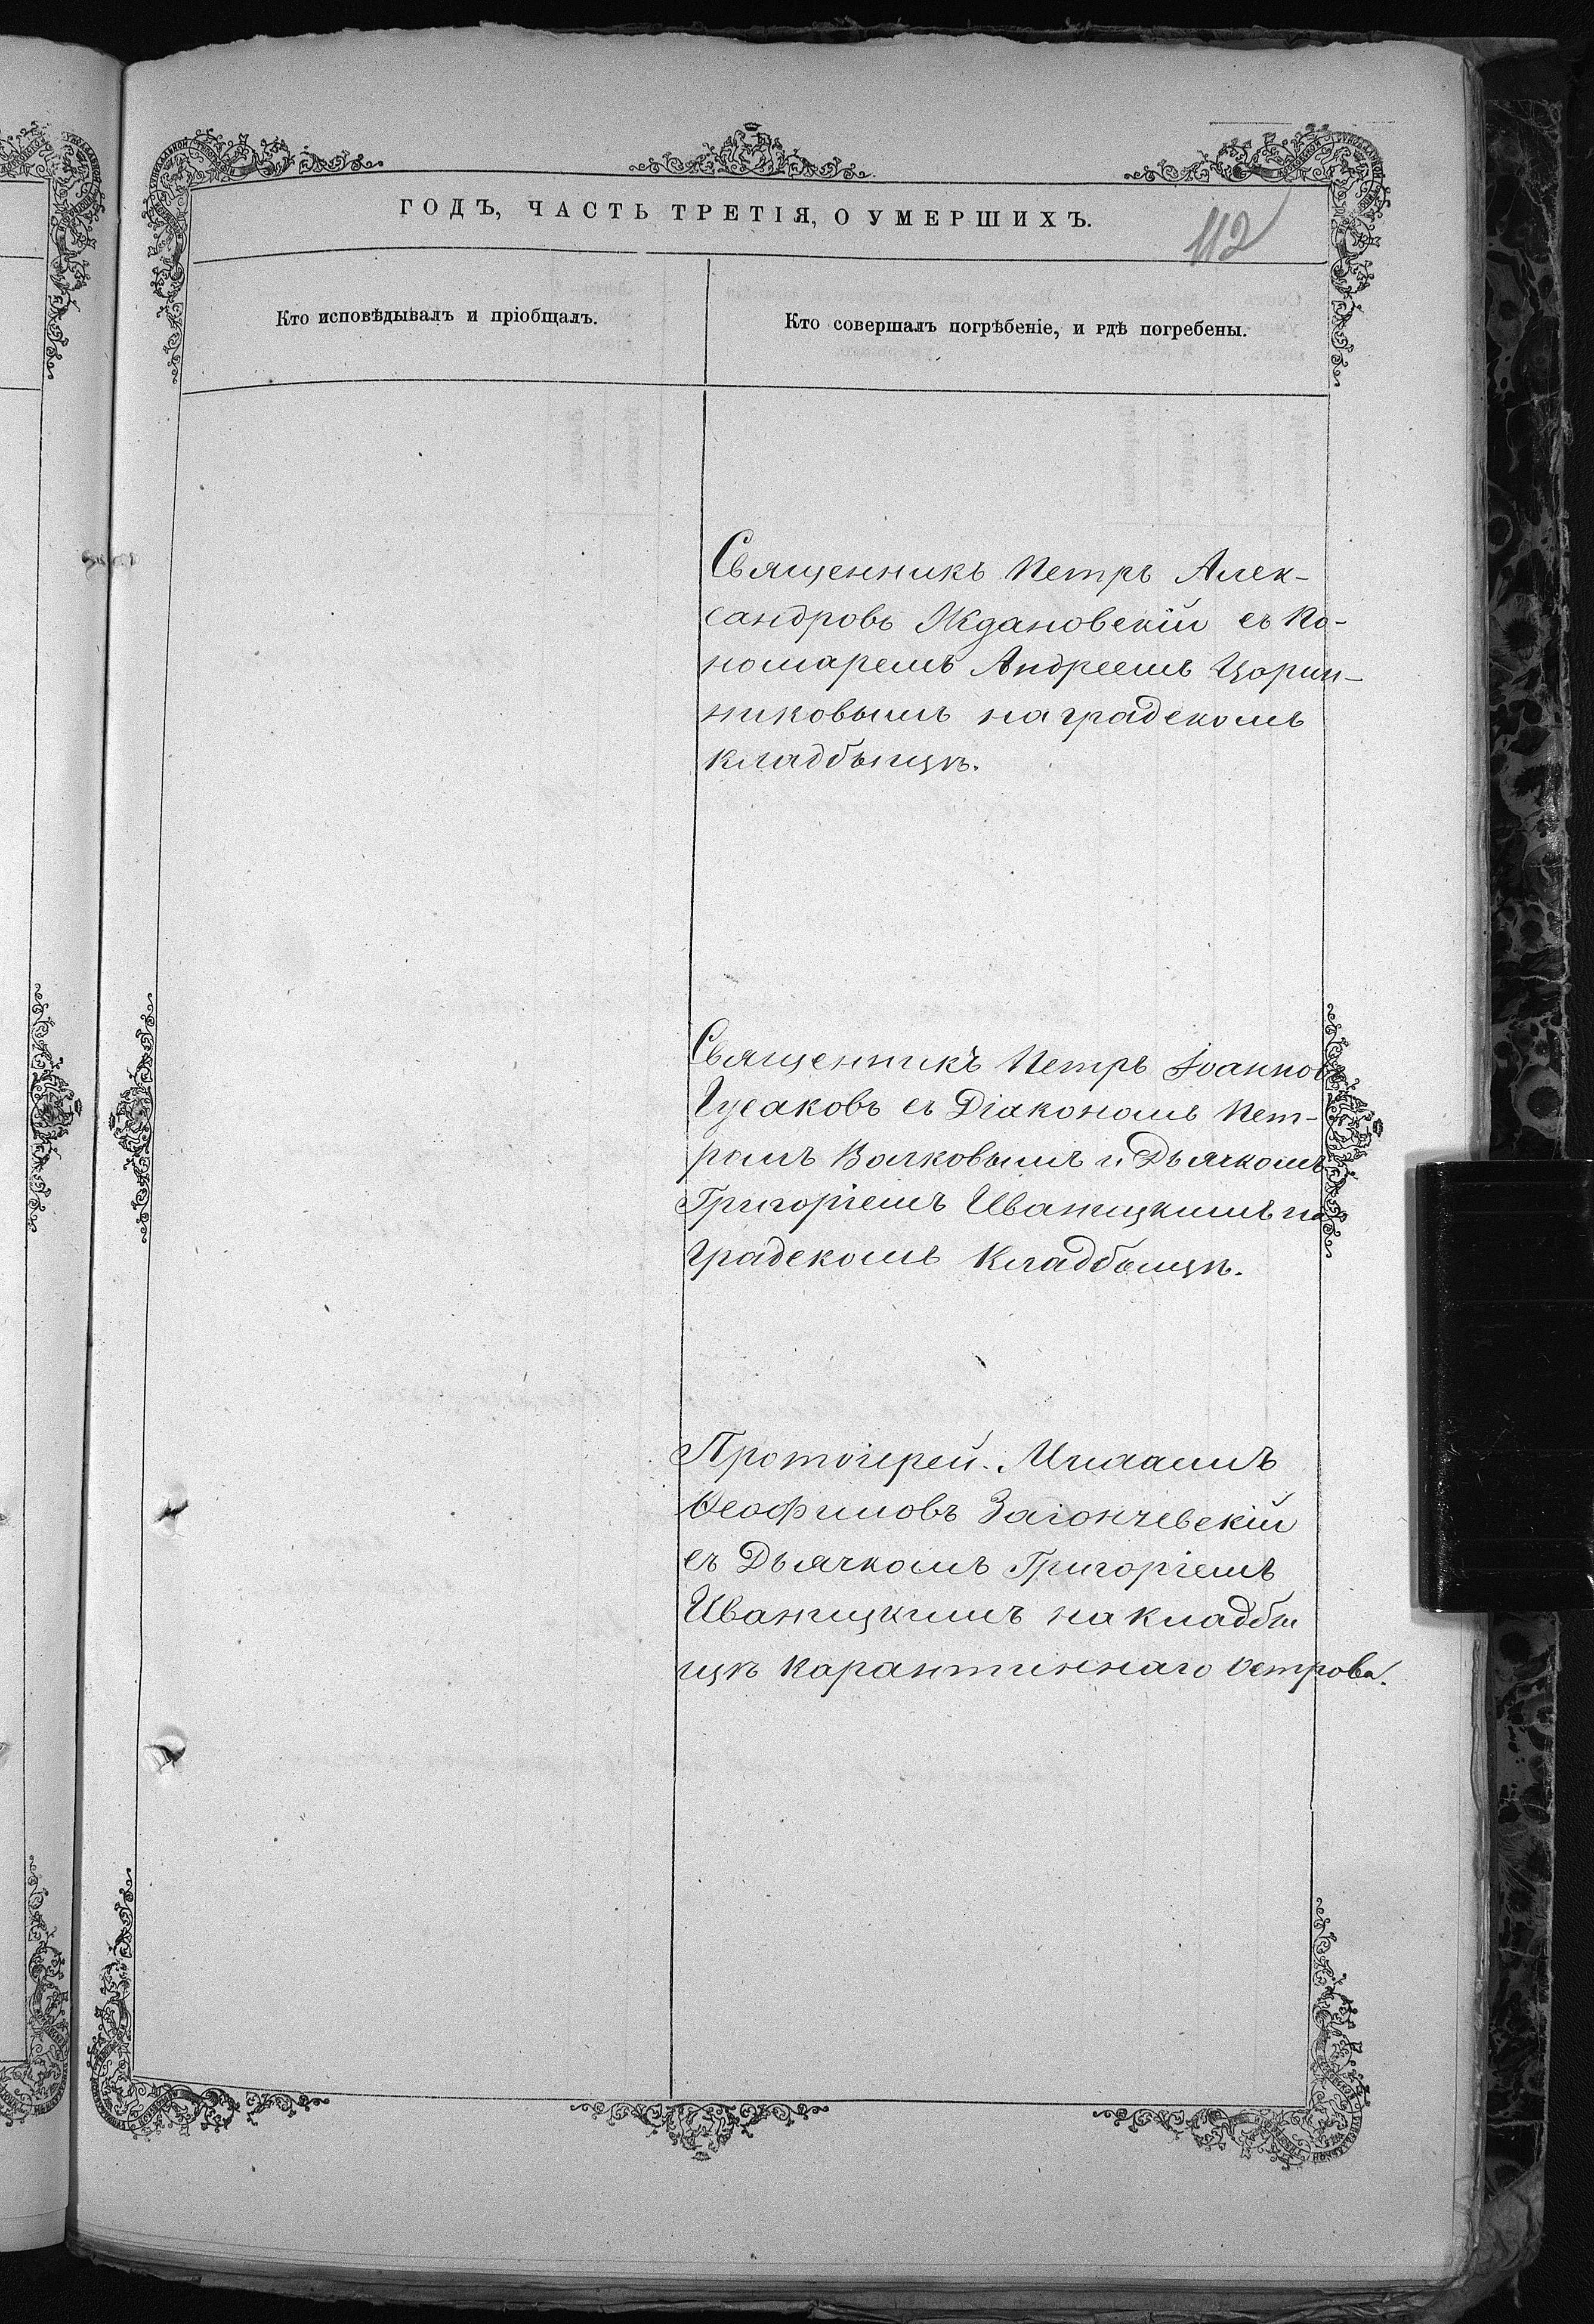 ГОДЪ, ЧАСТЬ ТРЕТІЯ, О УМЕРШИХЪ.
112
Кто исповѣдывалъ и пріобщалъ.
Кто совершалъ погрѣбеніе, и гдѣ погребены.
Священникъ Петръ Алек-
сандровъ Ждановскій съ По-
номаремъ Андреемъ Цорин-
никовымъ на градскомъ
кладбыщѣ.
Священникъ Петръ Іоанновъ
Гусаковъ съ Діакономъ Пет-
ромъ Волковымъ и Дьячкомъ
Григоріемъ Иваницкимъ на
градскомъ Кладбыщѣ.
Протоіерей Михаилъ
Ѳеофиловъ Загончевскій
съ Дьячкомъ Григоріемъ
Иваницкимъ на кладбы
щѣ карантиннаго острова.